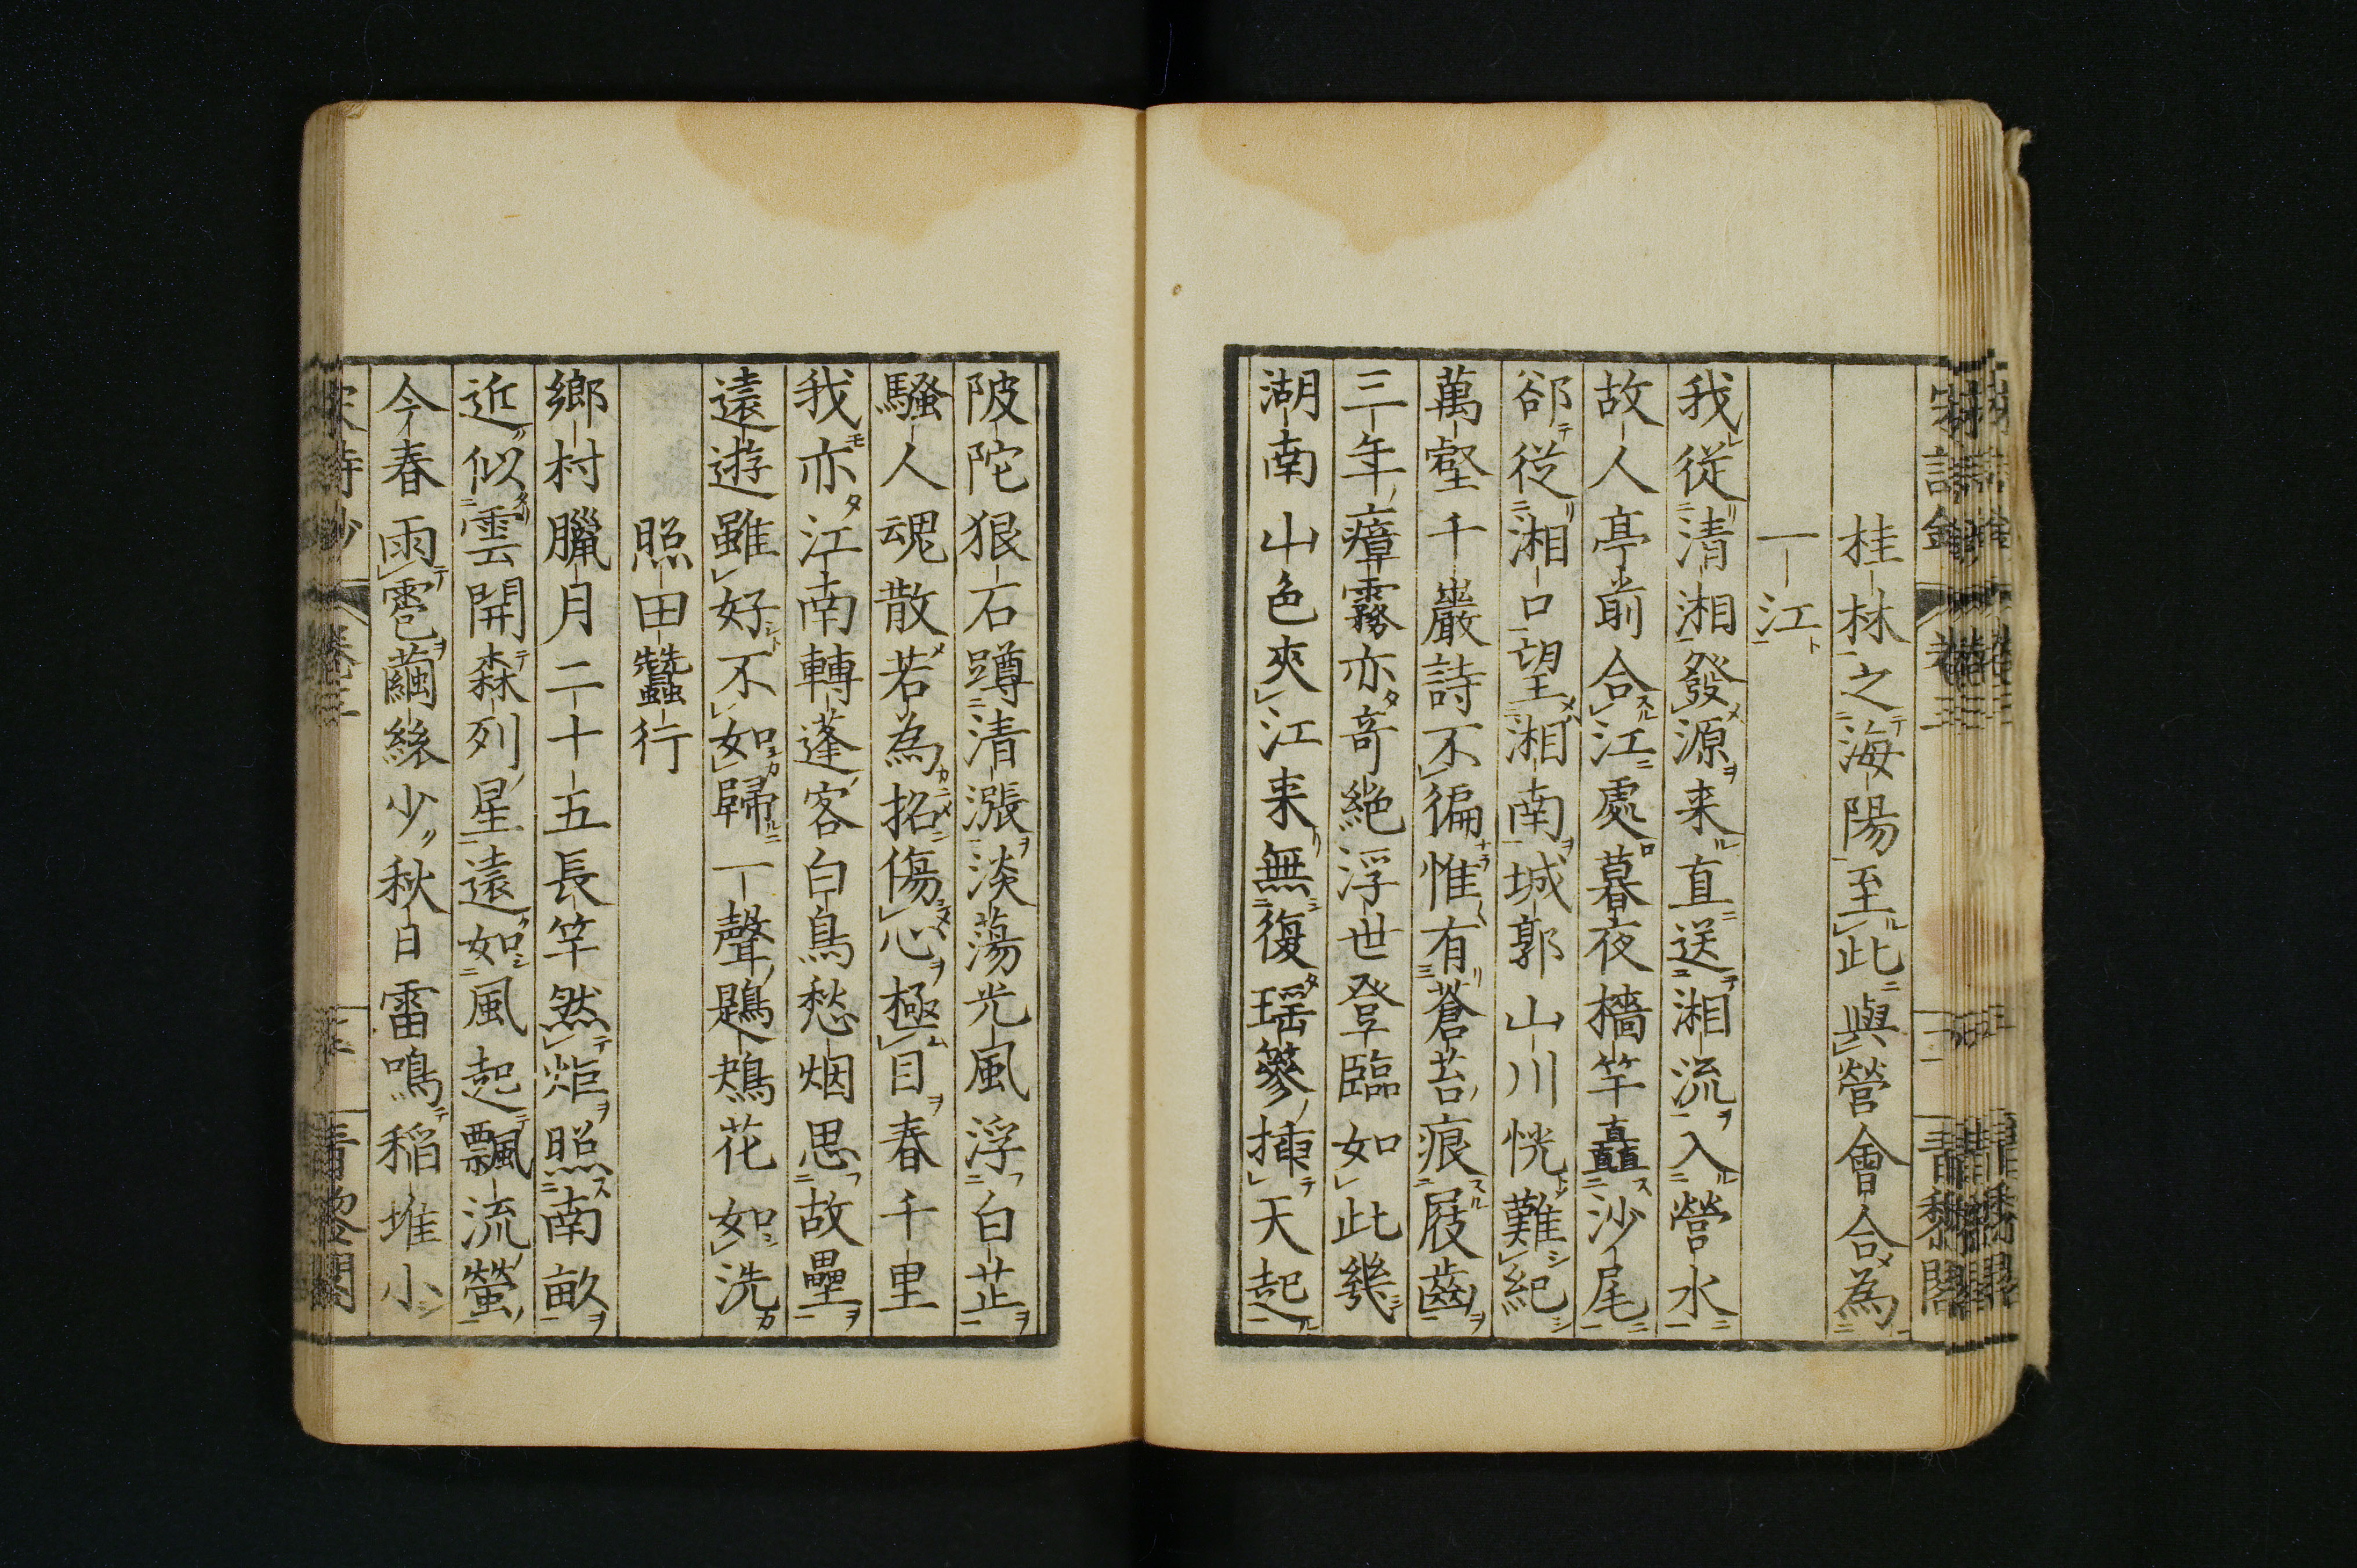 桂林之海陽至此與營會合為
一江
我從清湘發源来直送湘流入營水
故人亭前合江處暮夜檣竿矗沙尾
郤從湘口望湘南城郭山川恍難紀
萬壑千巖詩不徧惟有蒼苔痕屐齒
三年瘴霧亦竒絕浮世登臨如此幾
湖南山色夾江来無復瑶篸揷天起
陂陀狠石蹲清漲淡蕩光風浮白芷
騷人魂散若為招傷心極目春千里
我亦江南轉蓬客白鳥愁烟思故壘
遠遊雖好不如歸一聲鶗鴂花如洗
照田蠶行
鄉村臘月二十五長竿然炬照南畝
近似雲開森列星遠如風起飄流螢
今春雨雹繭絲少秋日雷鳴稻堆小